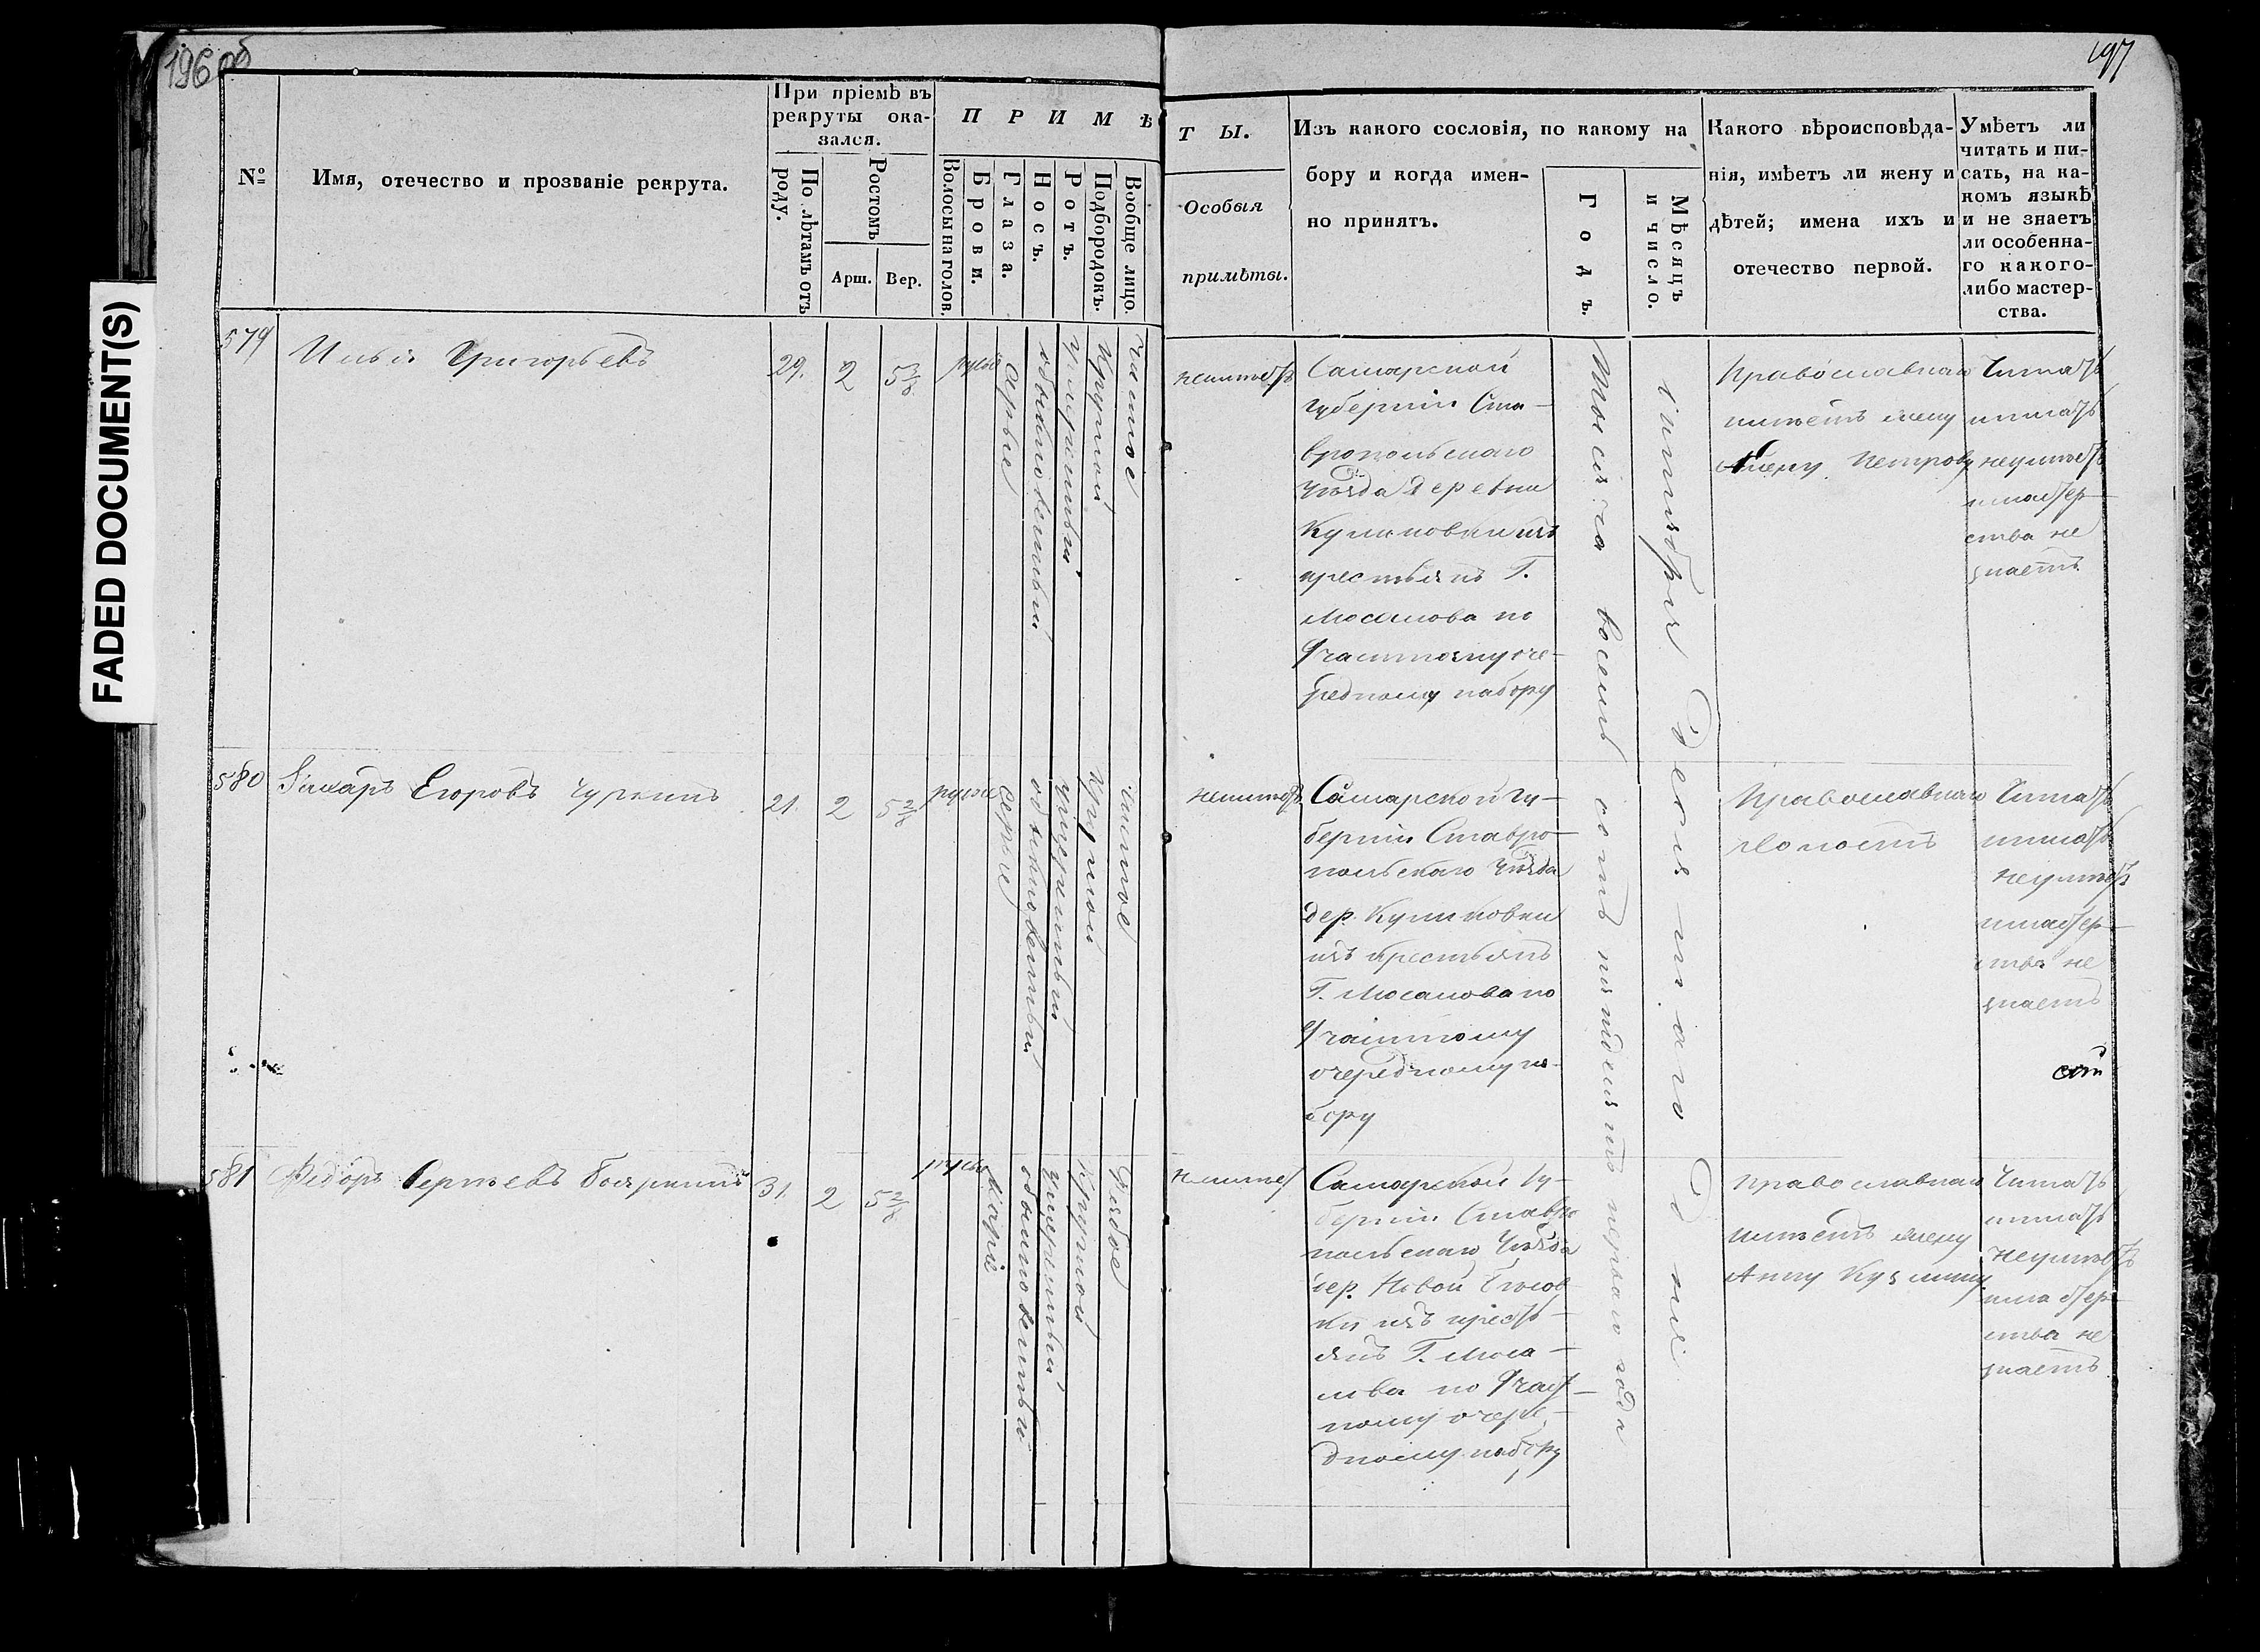 196 об
197
FADED DOCUMENT(S)
№
Имя, отечество и прозваніе рекрута.
При пріемѣ въ
рекруты ока-
зался.
По лѣтамъ отъ
роду.
Ростомъ
Арш.
Вер.
ПРИМѢ
Волосы на голов.
Брови.
Глаза.
Носъ.
Ротъ.
Подбородокъ.
Вообще лицо.
ТЫ.
Особыя
примѣты.
Изъ какого сословія, по какому на
бору и когда имен-
но принятъ.
Годъ.
Мѣсяцъ
и число.
Какого вѣроисповѣда-
нія, имѣетъ ли жену и
дѣтей; имена ихъ и
отечество первой.
Умѣетъ ли
читать и пи-
сать, на ка-
комъ языкѣ
и не знаетъ
ли особенна-
го какого-
либо мастер-
ства.
579
Илья Григорьевъ
29.
2
5 3/8
русые
сѣрые
обыкновенный
умеренный
круглой
чистое
неимѣетъ
Самарской
губерніи Ста-
вропольскаго
уѣзда деревни
Куликовки изъ
крестьянъ Г.
Мосолова по
участному оче-
редному набору
Тысяча восемь сотъ пятдесятъ перваго года
сентября десятаго дня
Православнаго
имѣетъ жену
Алену Петрову
Читать
писать
неумѣетъ
мастер-
ства не
знаетъ
580
Захаръ Егоровъ Чуркинъ
21.
2
5 2/8
русые
сѣрые
обыкновенный
умеренный
круглой
чистое
неимѣетъ
Самарской гу-
берніи Ставро-
польскаго уѣзда
дер. Куликовки
изъ крестьянъ
Г. Мосолова по
участному
очередному на-
бору
Православнаго
холостъ
Читать
писать
неумѣетъ
мастер-
ства не
знаетъ
581
Федоръ Сергѣевъ Бояркинъ
31.
2
5 2/8
русые
каріе
обыкновенный
умеренный
круглой
рябое
неимѣетъ
Самарской гу-
берніи Ставро
польскаго уѣзда
дер. Новой
ки изъ кресть-
янъ Г. Мосо-
лова по участ-
ному очере-
дному набору
Православнаго
имѣетъ жену
Анну Кузмину
Читать
писать
неумѣетъ
мастер-
ства не
знаетъ